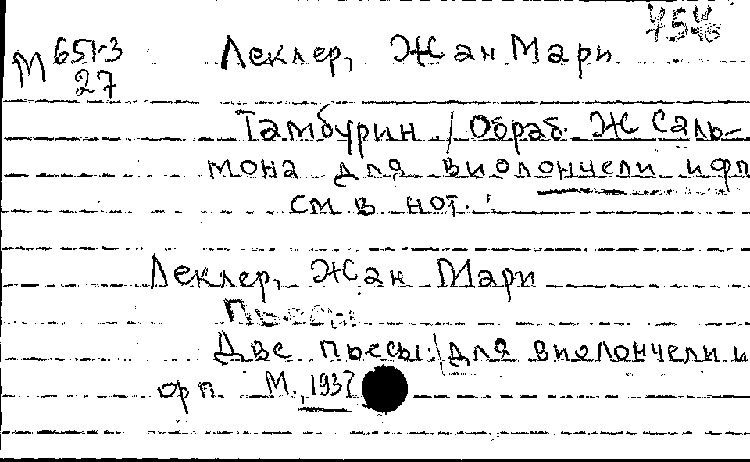 М 651-3
27
Леклер, Жан Мари
Тамбурин / Обраб. Ж Саль-
мона для виолончели и фп
см в нот.:
Леклер, Жан Мари
Пьесы
Две пьесы: / для виолончели и
фп. М., 1937